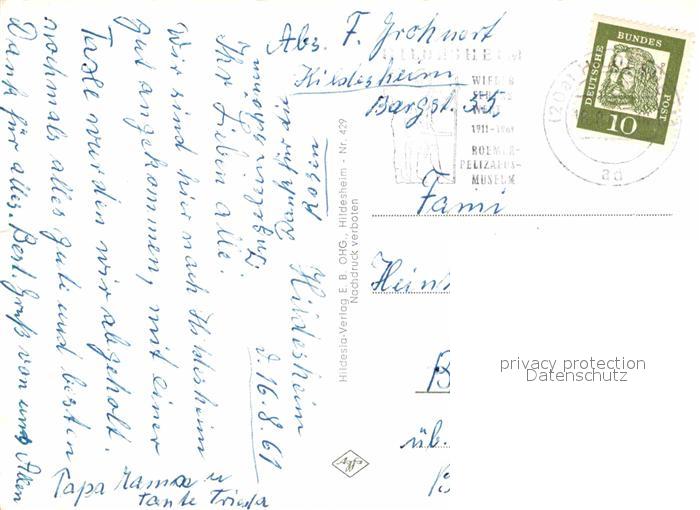 Abs. F. Grohnert
Hildesheim
Bergst. 55
HILDESHEIM
WIEDER
1911-1961
ROEMER-
PELIZAEUS-
MUSEUM
(20a)
ad
DEUTSCHE BUNDES POST
10
Fami
Hein
B
üb.
Hildesia-Verlag E. B. OHG., Hildesheim - Nr. 429
Nachdruck verboten
Agfa
privacy protection
Datenschutz
Hildesheim
d. 16.8.61
Ihr Lieben alle.
Wir sind hier nach Hildesheim
gut angekommen, mit einer
Taxe wurden wir abgeholt.
nochmals alles gute und besten
Dank für alles. Best. Gruß von uns Allen
Papa Mama u
Tante Frieda